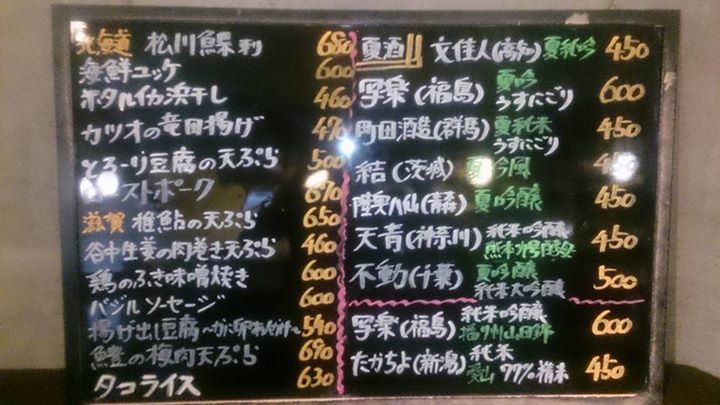 北海道 松川鰈刺 680
海鮮ユッケ 600
ホタルイカ浜干し 460
カツオの竜田揚げ 470
とろーり豆腐の天ぷら 500
ローストポーク 670
滋賀 稚鮎の天ぷら 650
谷中生姜の肉巻き天ぷら 460
鶏のふき味噌焼き 600
バジルソーセージ 600
揚げ出し豆腐 540
鱧の梅肉天ぷら 690
タコライス 630
夏酒!! 文佳人(高知) 夏純吟 450
写楽(福島) 夏吟 うすにごり 600
町田酒造(群馬) 夏純米 うすにごり 450
結(茨城) 夏吟風
陸奥八仙(青森) 夏吟醸 450
天青(神奈川) 純米吟醸 450
不動(千葉) 夏吟醸 純米大吟醸 500
写楽(福島) 純米吟醸 播州山田錦 600
たかちよ(新潟) 純米 愛山 77%精米 450